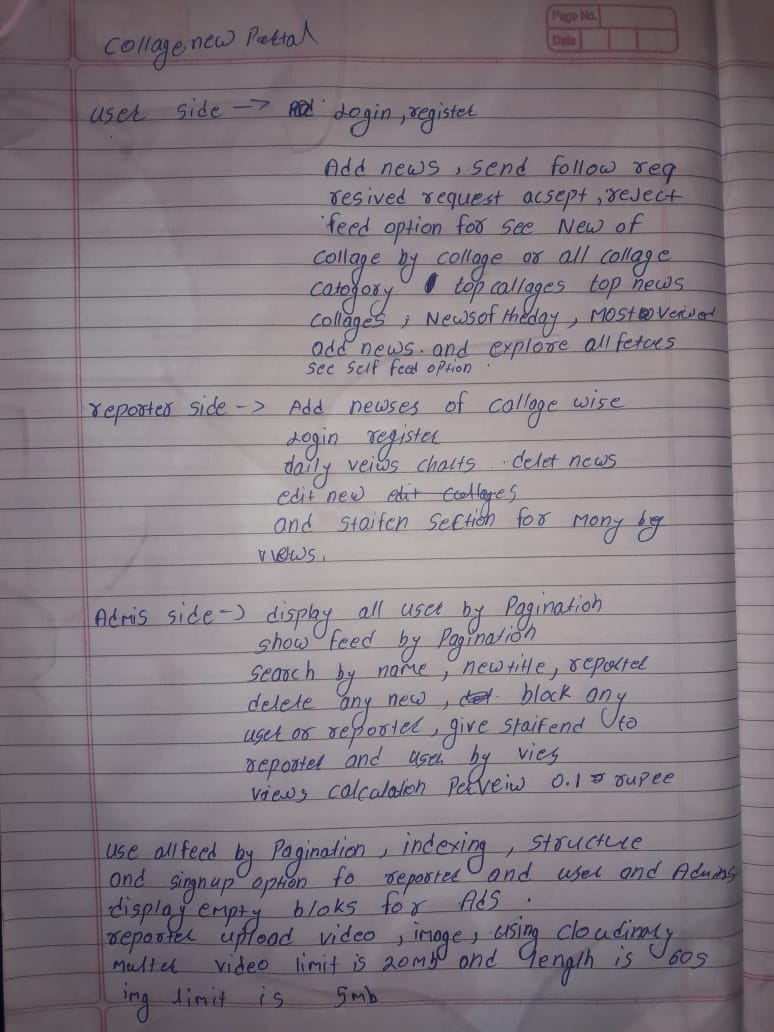 Page No.
Date
Collage new Portal
user side -> Login, register
Add news, send follow req
resived request acsept, reject
feed option for see New of
collage by collage or all collage
catogory top collages top news
collages, News of the day, Most veiwed
add news. and explore all fetues
see self feed option.
reporter side -> Add newses of collage wise
Login register
daily veiws charts. delet news
edit new edit Colleges
and staifen section for mony by
views.
Admis side -> display all user by Pagination
show feed by Pagination
search by name, new title, reporter
delete any new, block any
user or reporter, give staifend to
reporter and user by vies
views calculation Perveiw 0.1 rupee
use all feed by Pagination, indexing, structure
and singnup option fo reporter and user and Admins
display empty bloks for Ads.
reporter upload video, image, using cloudinary
multer video limit is 20mb and length is 60s
img limit is 5mb